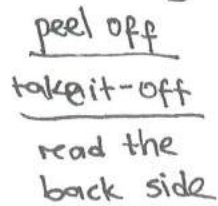 peel off
take it-off
read the
back side